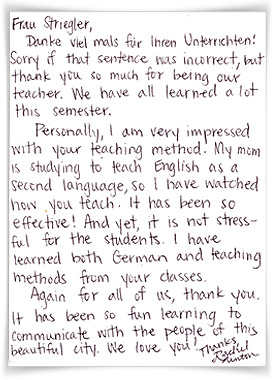 Frau Striegler,
Danke viel mals für Ihren Unterrichten!
Sorry if that sentence was incorrect, but
thank you so much for being our
teacher. We have all learned a lot
this semester.
Personally, I am very impressed
with your teaching method. My mom
is studying to teach English as a
second language, so I have watched
how you teach. It has been so
effective! And yet, it is not stress-
ful for the students. I have
learned both German and teaching
methods from your classes.
Again for all of us, thank you.
It has been so fun learning to
communicate with the people of this
beautiful city. We love you! Thanks,
Rachel